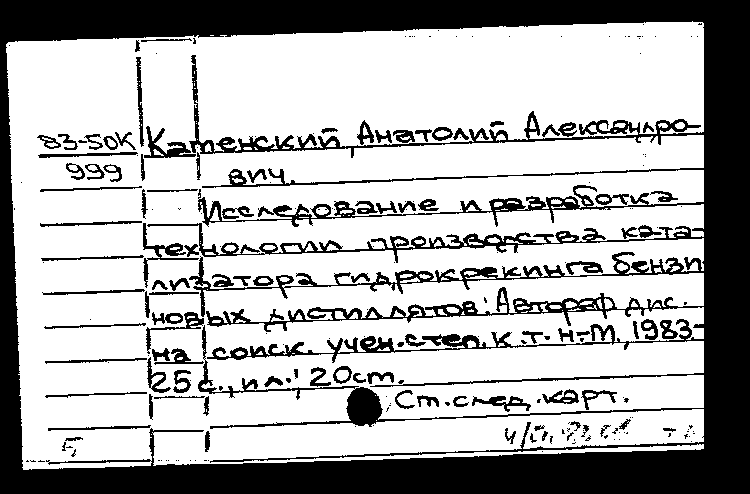 83-50К Каменский, Анатолий Александро-
999 вич.
Исследование и разработка
технологии производства ката-
лизатора гидрокрекинга бензи
новых дистиллятов: Автореф дис.
на соиск. учен.степ. к.т.н-М., 1983-
25 с., ил.; 20cm.
Ст.след.карт.
Б